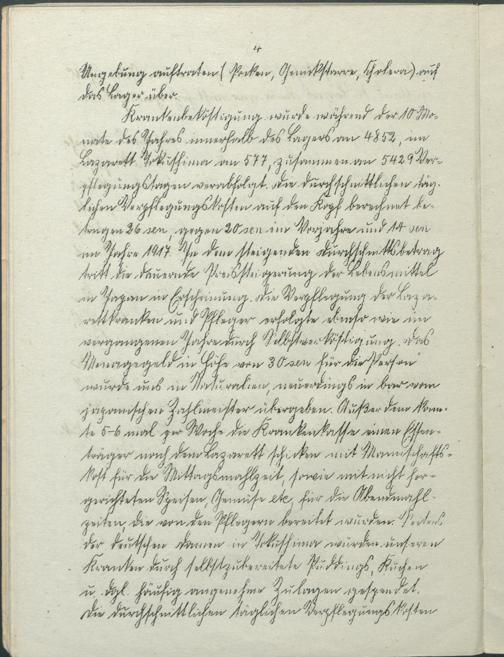 4
Umgebung auftraten (Pocken, Genickstarre, Cholera) auf
das Lager über.
Krankenbeköstigung wurde während der 10 Mo-
nate des Jahres innerhalb des Lagers an 4852, im
Lazarett Tokushima an 577, zusammen an 5429 Ver-
pflegungstagen verabfolgt. Die durchschnittlichen täg-
lichen Verpflegungskosten auf den Kopf berechnet be-
trugen 26 sen gegen 20 sen im Vorjahre und 14 sen
im Jahre 1917. In dem steigenden Durchschnittsbetrag
tritt die dauernde Preissteigerung der Lebensmittel
in Japan in Erscheinung. Die Verpflegung der Laza-
rettkranken und Pfleger erfolgte ebenso wie im
vergangenen Jahre durch Selbstverköstigung. Das
Menagegeld in Höhe von 30 sen für die Person
wurde uns in Naturalien, neuerdings in bar vom
japanischen Zahlmeister übergeben. Außerdem konn-
te 5-6 mal zur Woche die Krankenkasse einen Essen-
träger nach dem Lazarett schicken mit Mannschafts-
kost für die Mittagsmahlzeit, sowie mit nicht her-
gerichteten Speisen, Gemüse etc. für die Abendmahl-
zeiten, die von den Pflegern bereitet wurden. Seitens
der deutschen Damen in Tokushima wurden unseren
Kranken durch selbstzubereitete Puddings, Kuchen
u. dgl. häufig angenehme Zulagen gespendet.
Die durchschnittlichen täglichen Verpflegungskosten